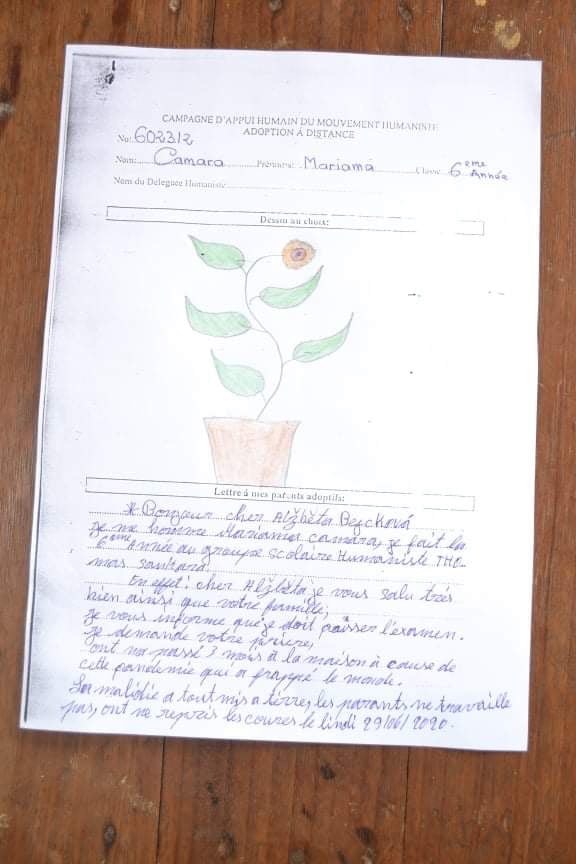 CAMPAGNE D'APPUI HUMAIN DU MOUVEMENT HUMANISTE
ADOPTION À DISTANCE
No: 602312
Nom: Camara Prénoms: Mariama Classe 6ème Année
Nom du Déléguée Humaniste
Dessin au choix:
Lettre à mes parents adoptifs:
* Bonjour cher Alžběta
Je me nomme Mariama camara, je fait la
6ème Année au groupe scolaire Humaniste THO-
mas sankara.
En effet! cher Alžběta je vous salu très
bien ainsi que votre famille;
Je vous informe que je doit passer l'examen.
Je demande votre prière,
ont na passé 3 mois à la maison à cause de
cette pandemie qui a frappé le monde.
La maladie a tout mis a terre, les parants ne travaille
pas, ont na repris les coures le lindi 29/06/2020.